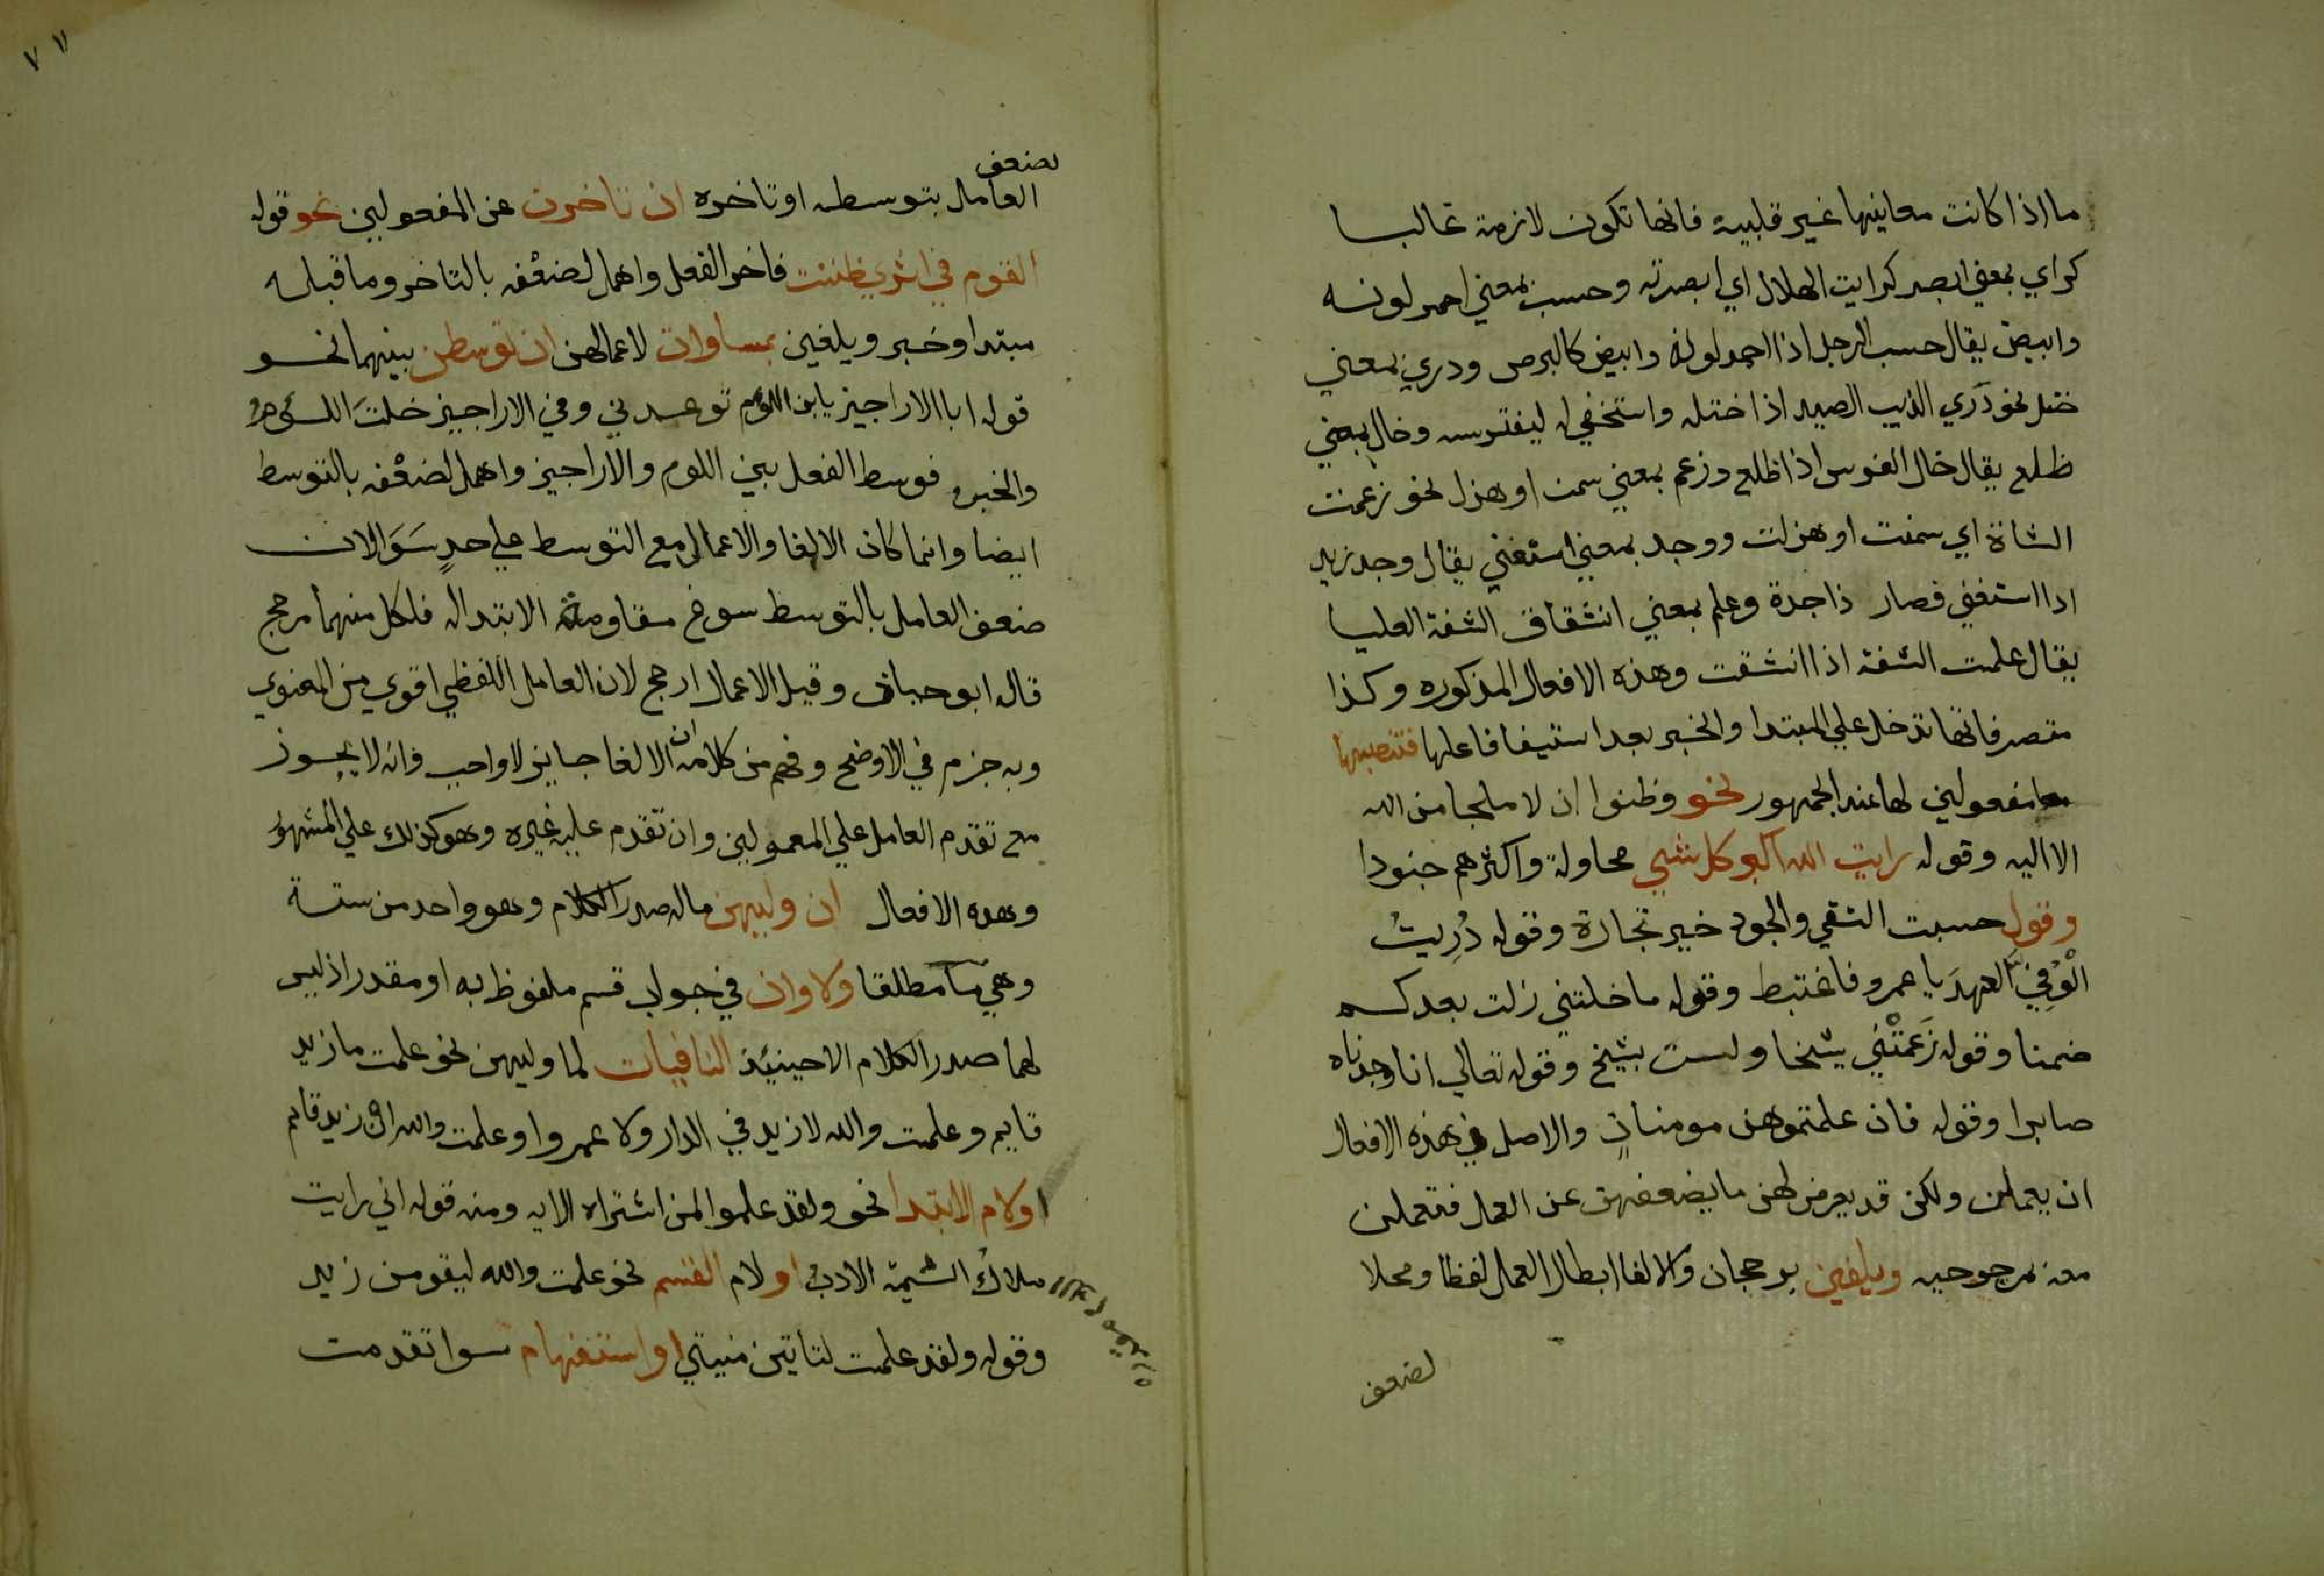 ما اذا كانت معانيها غير قلبية فانها تكون لازمة غالبا
كراي بمعني ابصر كرايت الهلال اي ابصرته وحسب بمعني احمر لونه
وابيض يقال حسب الرجل اذا احمر لونه وابيض كالبرص ودري بمعني
ختل نحو دَري الذيب الصيد اذا ختله واستخفي له ليفترسه وخال بمعني
ظلع يقال خال الفرس اذا ظلع وزعم بمعني سمن او هزل نحو زعمت
الشاة اي سمنت او هزلت ووجد بمعني استغني يقال وجد زيد
اذا استغني فصار ذا جدة وعلم بمعني انشقاق الشفة العليا
يقال علمت الشفة اذا انشقت وهذه الافعال المذكوره وكذا
متصرفاتها تدخل علي المبتدا والخبر بعد استيفا فاعلها فتنصبهما
معا مفعولين لها عند الجمهور نحو وظنوا ان لا ملجا من الله
الا اليه وقوله رايت الله اكبر كل شي محاولة واكثرهم جنودا
وقول حسبت التقي والجود خير تجارة وقوله دُرِيتُ
الْوَفِيَّ العهدَ يا عمرو فاغتبط وقوله ما خلتني زلت بعدكم
ضمنا وقوله زَعَمَتْنِي شيخا ولست بشيخ وقوله تعالي انا وجدناه
صابرا وقوله فان علمتموهن مومناتٍ والاصل في هذه الافعال
ان يعملن ولكن قد يعرض لهن ما يضعفهن عن العمل فتعملن
معه بمرجوحيه ويلغين برجحان والالغا ابطال العمل لفظا ومحلا
لضعف
٧٧
لضعف
العامل بتوسطه او تاخره ان تاخرن عن المفعولين نحو قوله
القوم في اثري ظننت فاخر الفعل واهمل لضعْفه بالتاخر وما قبله
مبتدا وخبر ويلغين بمساوات لاعمالهن ان توسطن بينهما نحو
قوله ابا الاراجيز يابن اللؤم توعدني وفي الاراجيز خلتَ اللؤمُ
والخبر فوسط الفعل بين اللوم والاراجيز واهمل لضعْفه بالتوسط
ايضا وانما كان الالغا والاعمال مع التوسط علي حدٍ سَوَا لان
ضعف العامل بالتوسط سوغ مقاومة الابتدا له فلكل منهما مرجح
قال ابو حيان وقيل الاعمال ارجح لان العامل اللفظي اقوي من المعنوي
وبه جزم في الاوضح وفهم من كلامه ان الالغا جايز لا واجب وانه لا يجوز
مع تقدم العامل علي المعمولين وان تقدم عليه غيره وهو كذلك علي المشهور
وهذه الافعال ان وليهن ماله صدر الكلام وهو واحد من ستة
وهي ما مطلقا ولا وان في جواب قسم ملفوظ به او مقدر اذ ليس
لهما صدر الكلام الا حينيئذ النافيات لما وليهن نحو علمت ما زيد
قايم وعلمت والله لا زيد في الدار ولا عمروا وعلمت والله ان زيد قايم
او لام الابتدا نحو ولقد علموا لمن اشتراه الايه ومنه قوله اني رايت
ملاكُ الشيمة الادبُ او لام القسم نحو علمت والله ليقومن زيد
وقوله ولقد علمت لتاتين منيتي او استفهام سوا تقدمت